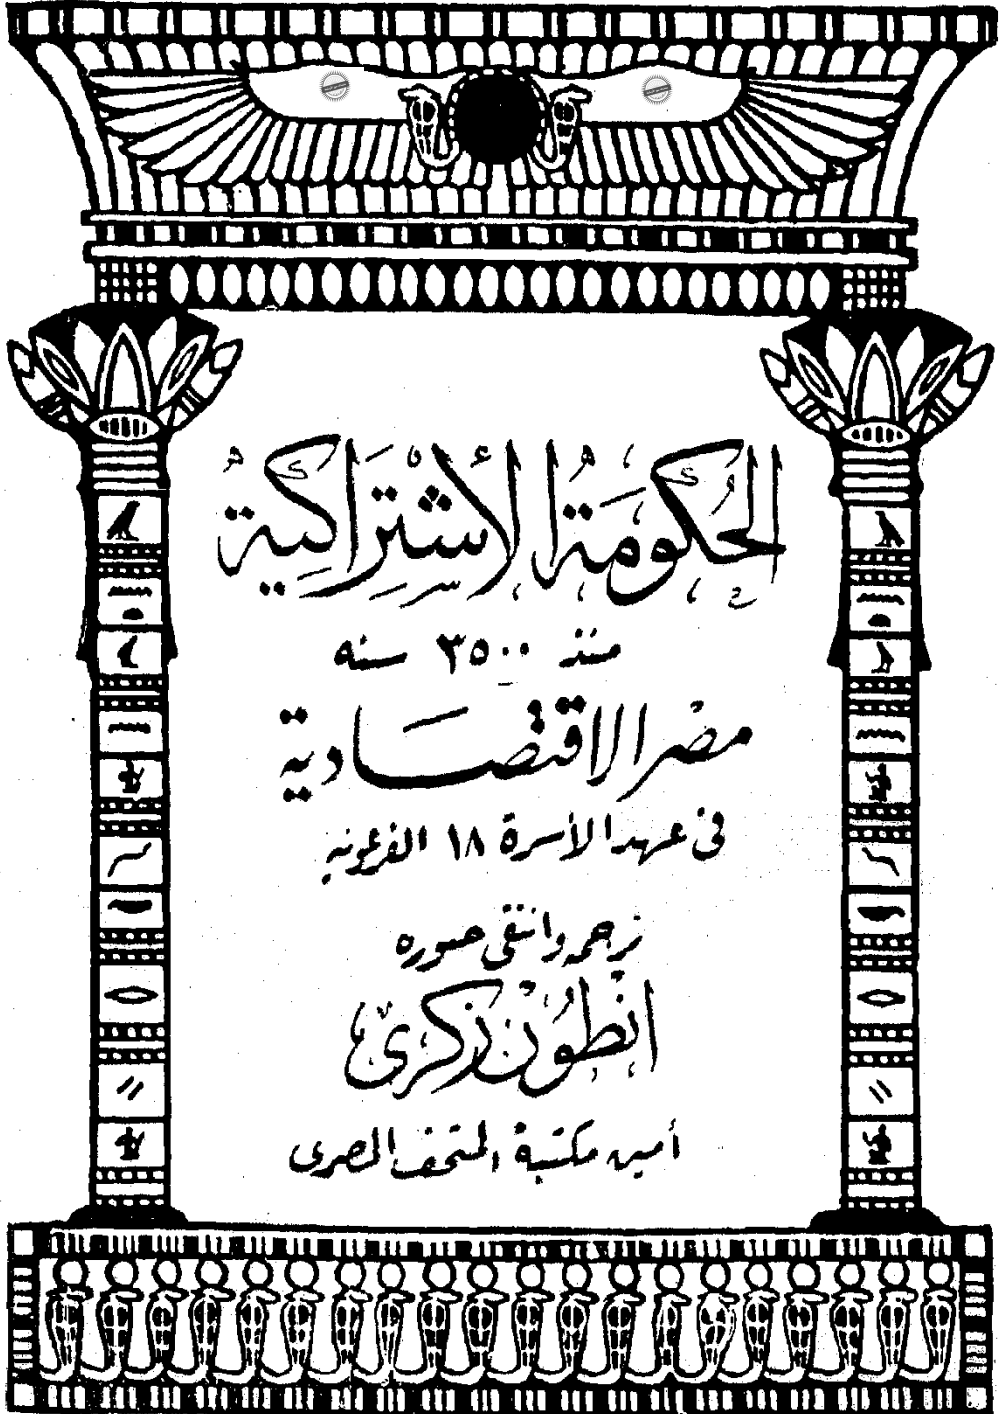 الحُكُومَةُ الأَشْتِرَاكِيَة
منذ ٣٥٠٠ سنه
مصر الاقتصادية
فى عهد الأسرة ١٨ الفرعونيه
ترجمه وانتقى صوره
انطُون زكرى
أمين مكتبة المتحف المصرى